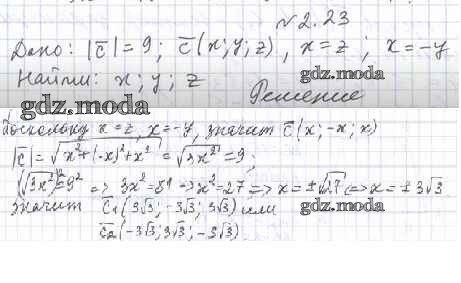 № 2.23
Дано: |c̅| = 9; c̅(x; y; z), x = z; x = -y
gdz.moda
Найти: x; y; z
gdz.moda
Решение
Поскольку x = z, x = -y, значит c̅(x; -x; x)
|c̅| = √(x² + (-x)² + x²) = √(3x²) = 9;
(√(3x²))² = 9² => 3x² = 81 => x² = 27 => x = ±√27 => x = ±3√3
значит c̅₁(3√3; -3√3; 3√3) или
gdz.moda
c̅₂(-3√3; 3√3; -3√3)